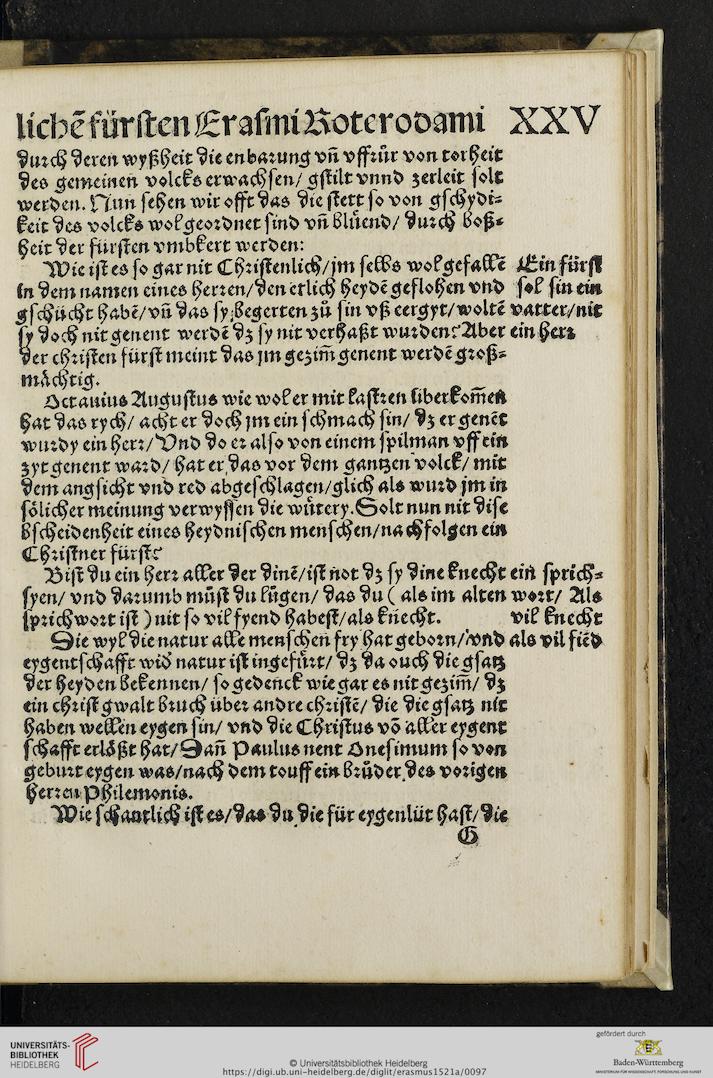 lichē fürsten Erasmi Roterodami XXV
durch deren wyßheit die enbarung vn̄ vffrür von torheit
des gemeinen volcks erwachsen/ gstilt vnnd zerleit solt
werden. Nun sehen wir offt das die stett so von gschydi⸗
keit des volcks wol geordnet sind vn̄ blüend/ durch boß⸗
heit der fürsten vmbkert werden:
Wie ist es so gar nit Christenlich/ jm selbs wol gefallē
in dem namen eines herren/ den etlich heydē geflohen vnd
gschücht habē/ vn̄ das sy begerten zů sin vß eergyt/ woltē
sy doch nit genent werdē dz sy nit verhaßt wurden? Aber
der christen fürst meint das jm gezim̄ genent werdē groß⸗
mächtig.
Ein fürst
sol sin ein
vatter/ nit
ein herr
Octauius Augustus wie wol er mit lastren überkom̄en
hat das rych/ acht er doch jm ein schmach sin/ dz er genēt
wurdy ein herr/ Vnd do er also von einem spilman vff ein
zyt genent ward/ hat er das vor dem gantzen volck/ mit
dem angsicht vnd red abgeschlagen/ glich als wurd jm in
sölicher meinung verwyssen die wütery. Solt nun nit dise
bscheidenheit eines heydnischen menschen/ nachfolgen ein
Christner fürst?
Bist du ein herr aller der dinē/ ist not dz sy dine knecht
syen/ vnd darumb můst du lůgen/ das du ( als im alten
sprichwort ist ) nit so vil fyend habest/ als knecht.
ein sprich⸗
wort/ Als
vil knecht
als vil fiēd
Die wyl die natur alle menschen fry hat geborn/ vnd
eygentschafft wid̄ natur ist ingefürt/ dz da ouch die gsatz
der heyden bekennen/ so gedenck wie gar es nit gezim̄/ dz
ein christ gwalt bruch über andre christē/ die die gsatz nit
haben wellen eygen sin/ vnd die Christus vō aller eygent
schafft erlößt hat/ Dan̄ Paulus nent Onesimum so von
geburt eygen was/ nach dem touff ein brůder des vorigen
herren Philemonis.
Wie schantlich ist es/ das du die für eygenlüt hast/ die
G
UNIVERSITÄTS-
BIBLIOTHEK
HEIDELBERG
© Universitätsbibliothek Heidelberg
https://digi.ub.uni-heidelberg.de/diglit/erasmus1521a/0097
gefördert durch
Baden-Württemberg
MINISTERIUM FÜR WISSENSCHAFT, FORSCHUNG UND KUNST